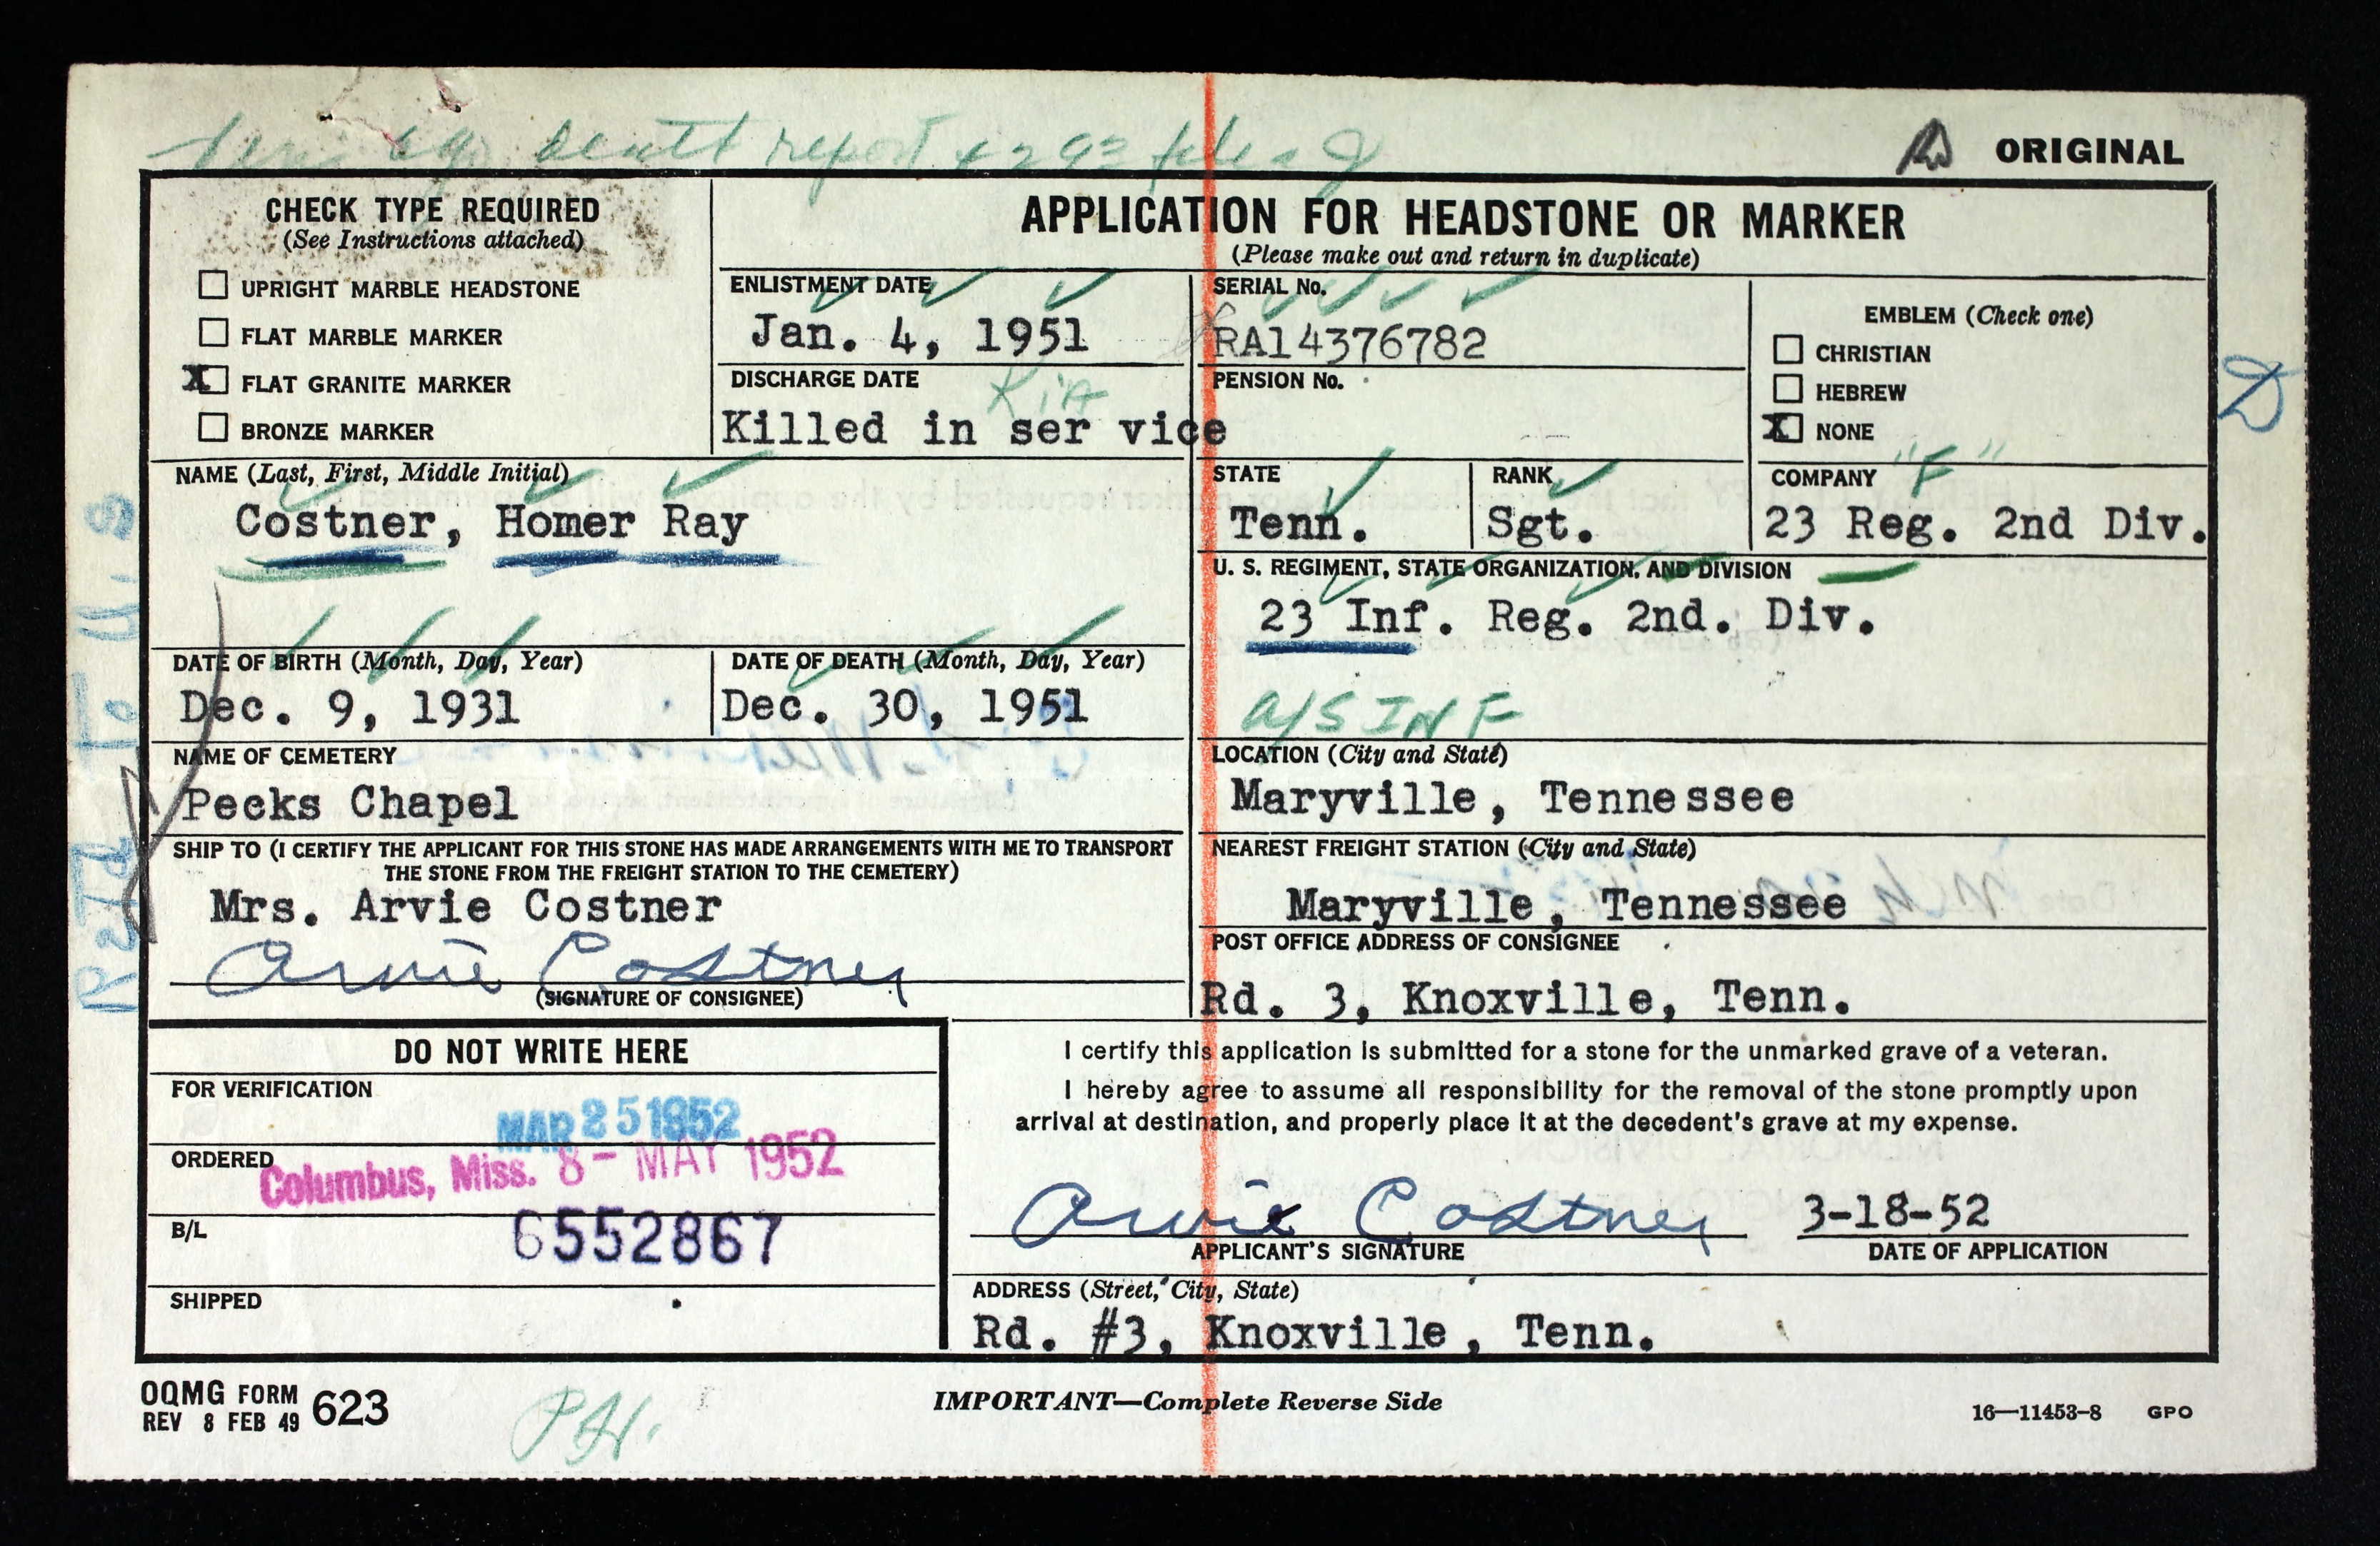 death report & 293 file
ORIGINAL
CHECK TYPE REQUIRED
(See Instructions attached)
UPRIGHT MARBLE HEADSTONE
FLAT MARBLE MARKER
X FLAT GRANITE MARKER
BRONZE MARKER
APPLICATION FOR HEADSTONE OR MARKER
(Please make out and return in duplicate)
ENLISTMENT DATE
Jan. 4, 1951
SERIAL No.
RA14376782
DISCHARGE DATE
KIA
Killed in ser vice
PENSION No.
EMBLEM (Check one)
CHRISTIAN
HEBREW
X NONE
D
NAME (Last, First, Middle Initial)
Costner, Homer Ray
STATE
Tenn.
RANK
Sgt.
COMPANY "F"
23 Reg. 2nd Div.
U. S. REGIMENT, STATE ORGANIZATION, AND DIVISION
23 Inf. Reg. 2nd. Div.
A/S INF
DATE OF BIRTH (Month, Day, Year)
Dec. 9, 1931
DATE OF DEATH (Month, Day, Year)
Dec. 30, 1951
NAME OF CEMETERY
Pecks Chapel
LOCATION (City and State)
Maryville, Tennessee
SHIP TO (I CERTIFY THE APPLICANT FOR THIS STONE HAS MADE ARRANGEMENTS WITH ME TO TRANSPORT
THE STONE FROM THE FREIGHT STATION TO THE CEMETERY)
Mrs. Arvie Costner
Arvie Costner
(SIGNATURE OF CONSIGNEE)
NEAREST FREIGHT STATION (City and State)
Maryville, Tennessee
POST OFFICE ADDRESS OF CONSIGNEE
Rd. 3, Knoxville, Tenn.
Retd To U.S
DO NOT WRITE HERE
FOR VERIFICATION
MAR 25 1952
ORDERED
Columbus, Miss. 8- MAY 1952
B/L
6552867
SHIPPED
I certify this application is submitted for a stone for the unmarked grave of a veteran.
I hereby agree to assume all responsibility for the removal of the stone promptly upon
arrival at destination, and properly place it at the decedent's grave at my expense.
Arvie Costner
3-18-52
APPLICANT'S SIGNATURE
DATE OF APPLICATION
ADDRESS (Street, City, State)
Rd. #3, Knoxville, Tenn.
OQMG FORM 623
REV 8 FEB 49
P.H.
IMPORTANT—Complete Reverse Side
16—11453-8 GPO